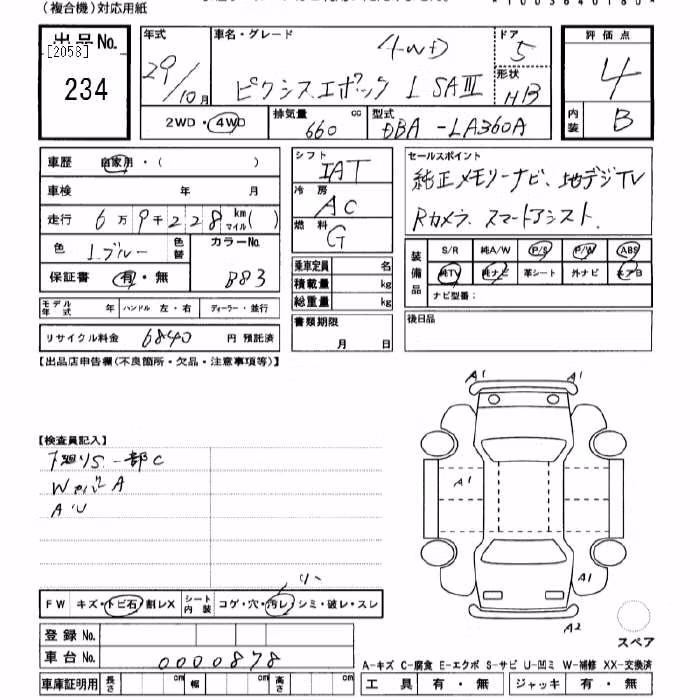 (複合機)対応用紙
出品No.
[2053]
234
年式
29/10月
車名・グレード
4WD
ピクシスエポック L SAⅢ
ドア
5
形状
HB
評価点
4
内装
B
2WD・4WD
排気量
660 cc
型式
DBA-LA360A
車歴 自家用・( )
車検 年 月
走行 6万9千228 km マイル( )
色 Lブルー 色替
カラーNo.
B83
保証書 有・無
モデル年式 年 ハンドル 左・右 ディーラー・並行
リサイクル料金 6840 円 預託済
シフト
IAT
冷房
AC
燃料
G
乗車定員 名
積載量 kg
総重量 kg
書類期限
月 日
セールスポイント
純正メモリーナビ、地デジTV
Rカメラ、スマートアシスト.
装備品
S/R 純A/W P/S P/W ABS
純TV 純ナビ 革シート 外ナビ エアB
ナビ型番:
後日品
【出品店申告欄(不良箇所・欠品・注意事項等)】
【検査員記入】
下廻りS.一部C
A
AU
FW キズ・トビ石・割レX シート内装 コゲ・穴・汚レ・シミ・破レ・スレ
登録No.
車台No. 0000878
車庫証明用 長さ cm 幅 cm 高さ cm
A1 A1
A1
A1
A2
スペア
A-キズ C-腐食 E-エクボ S-サビ U-凹ミ W-補修 XX-交換済
工具 有・無 ジャッキ 有・無